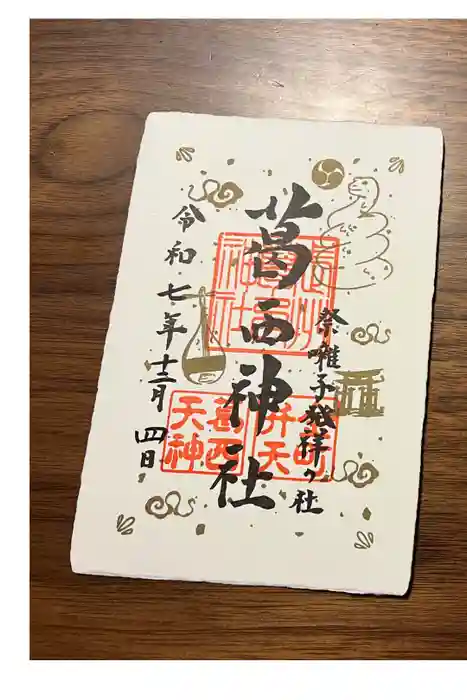 祭囃子発祥ノ社
葛西神社
令和七年十二月四日
葛西
天神
弁天